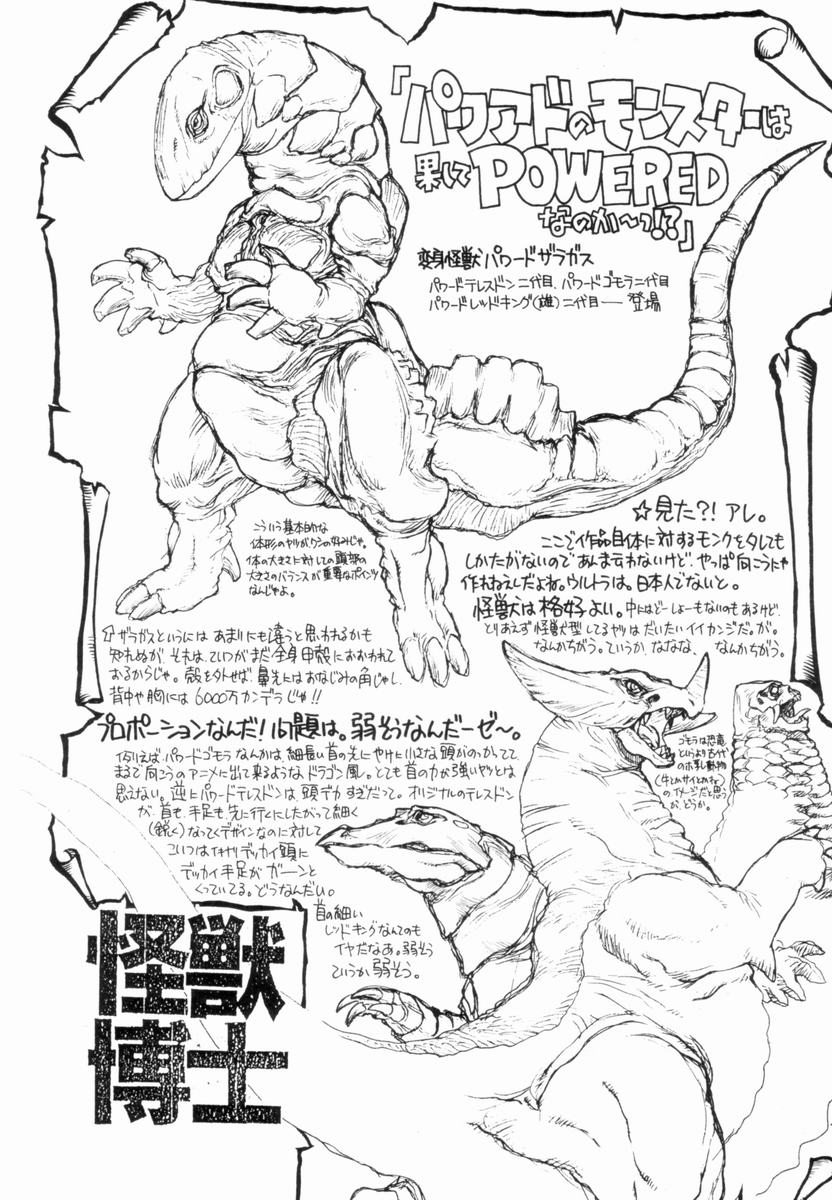 「パワアドのモンスターは
果して POWERED
なのか〜っ!?」
変身怪獣 パワードザラガス
パワードテレスドン二代目、パワードゴモラ二代目
パワードレッドキング(雄)二代目 ── 登場
☆見た?! アレ。
ここで作品自体に対するモンクをタレても
しかたがないのであんま云わないけど、やっぱ向こうにゃ
作れねえんだよね。ウルトラは。日本人でないと。
怪獣は格好よい。中にはどーしよーもないのもあるけど、
とりあえず怪獣型してるヤツはだいたいイイカンジだ。が。
なんかちがう。ていうか、ななな、なんかちがう。
こういう基本的な
体形のヤツがワシの好みじゃ。
体の大きさに対しての頭部の
大きさのバランスが重要なポインツ
なんじゃよ。
ザラガスというにはあまりにも違うと思われるかも
知れぬが、それは、こいつがまだ全身甲殻におおわれて
おるからじゃ。殻を外せば、鼻先にはおなじみの角じゃし、
背中や胸には6000万カンデラじゅ!!
プロポーションなんだ!問題は。弱そうなんだーゼ〜。
例えば、パワードゴモラなんかは、細長い首の先にやけに小さな頭がのっかてて
まるで向こうのアニメに出て来るようなドラゴン風。とても首の力が強いヤツとは
思えない。逆にパワードテレスドンは、頭デカすぎだって。オリジナルのテレスドン
が、首も、手足も、先に行くにしたがって細く
(鋭く)なってくデザインなのに対して
こいつはデッカイ頭に
デッカイ手足がガーンと
くっていてる。どうなんだい。
ゴモラは恐竜
というより古代
のホ乳動物
(牛とかサイとかね)
のイメージだと思う
が、どうか。
首の細い
レッドキングなんてのも
イヤだなあ。弱そう
ていうか弱そう。
怪獣
博士